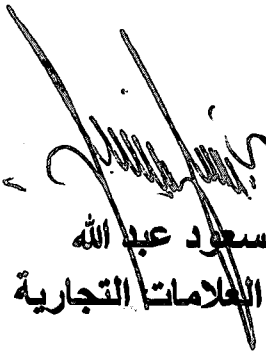 سعود عبد الله
العلامات التجارية